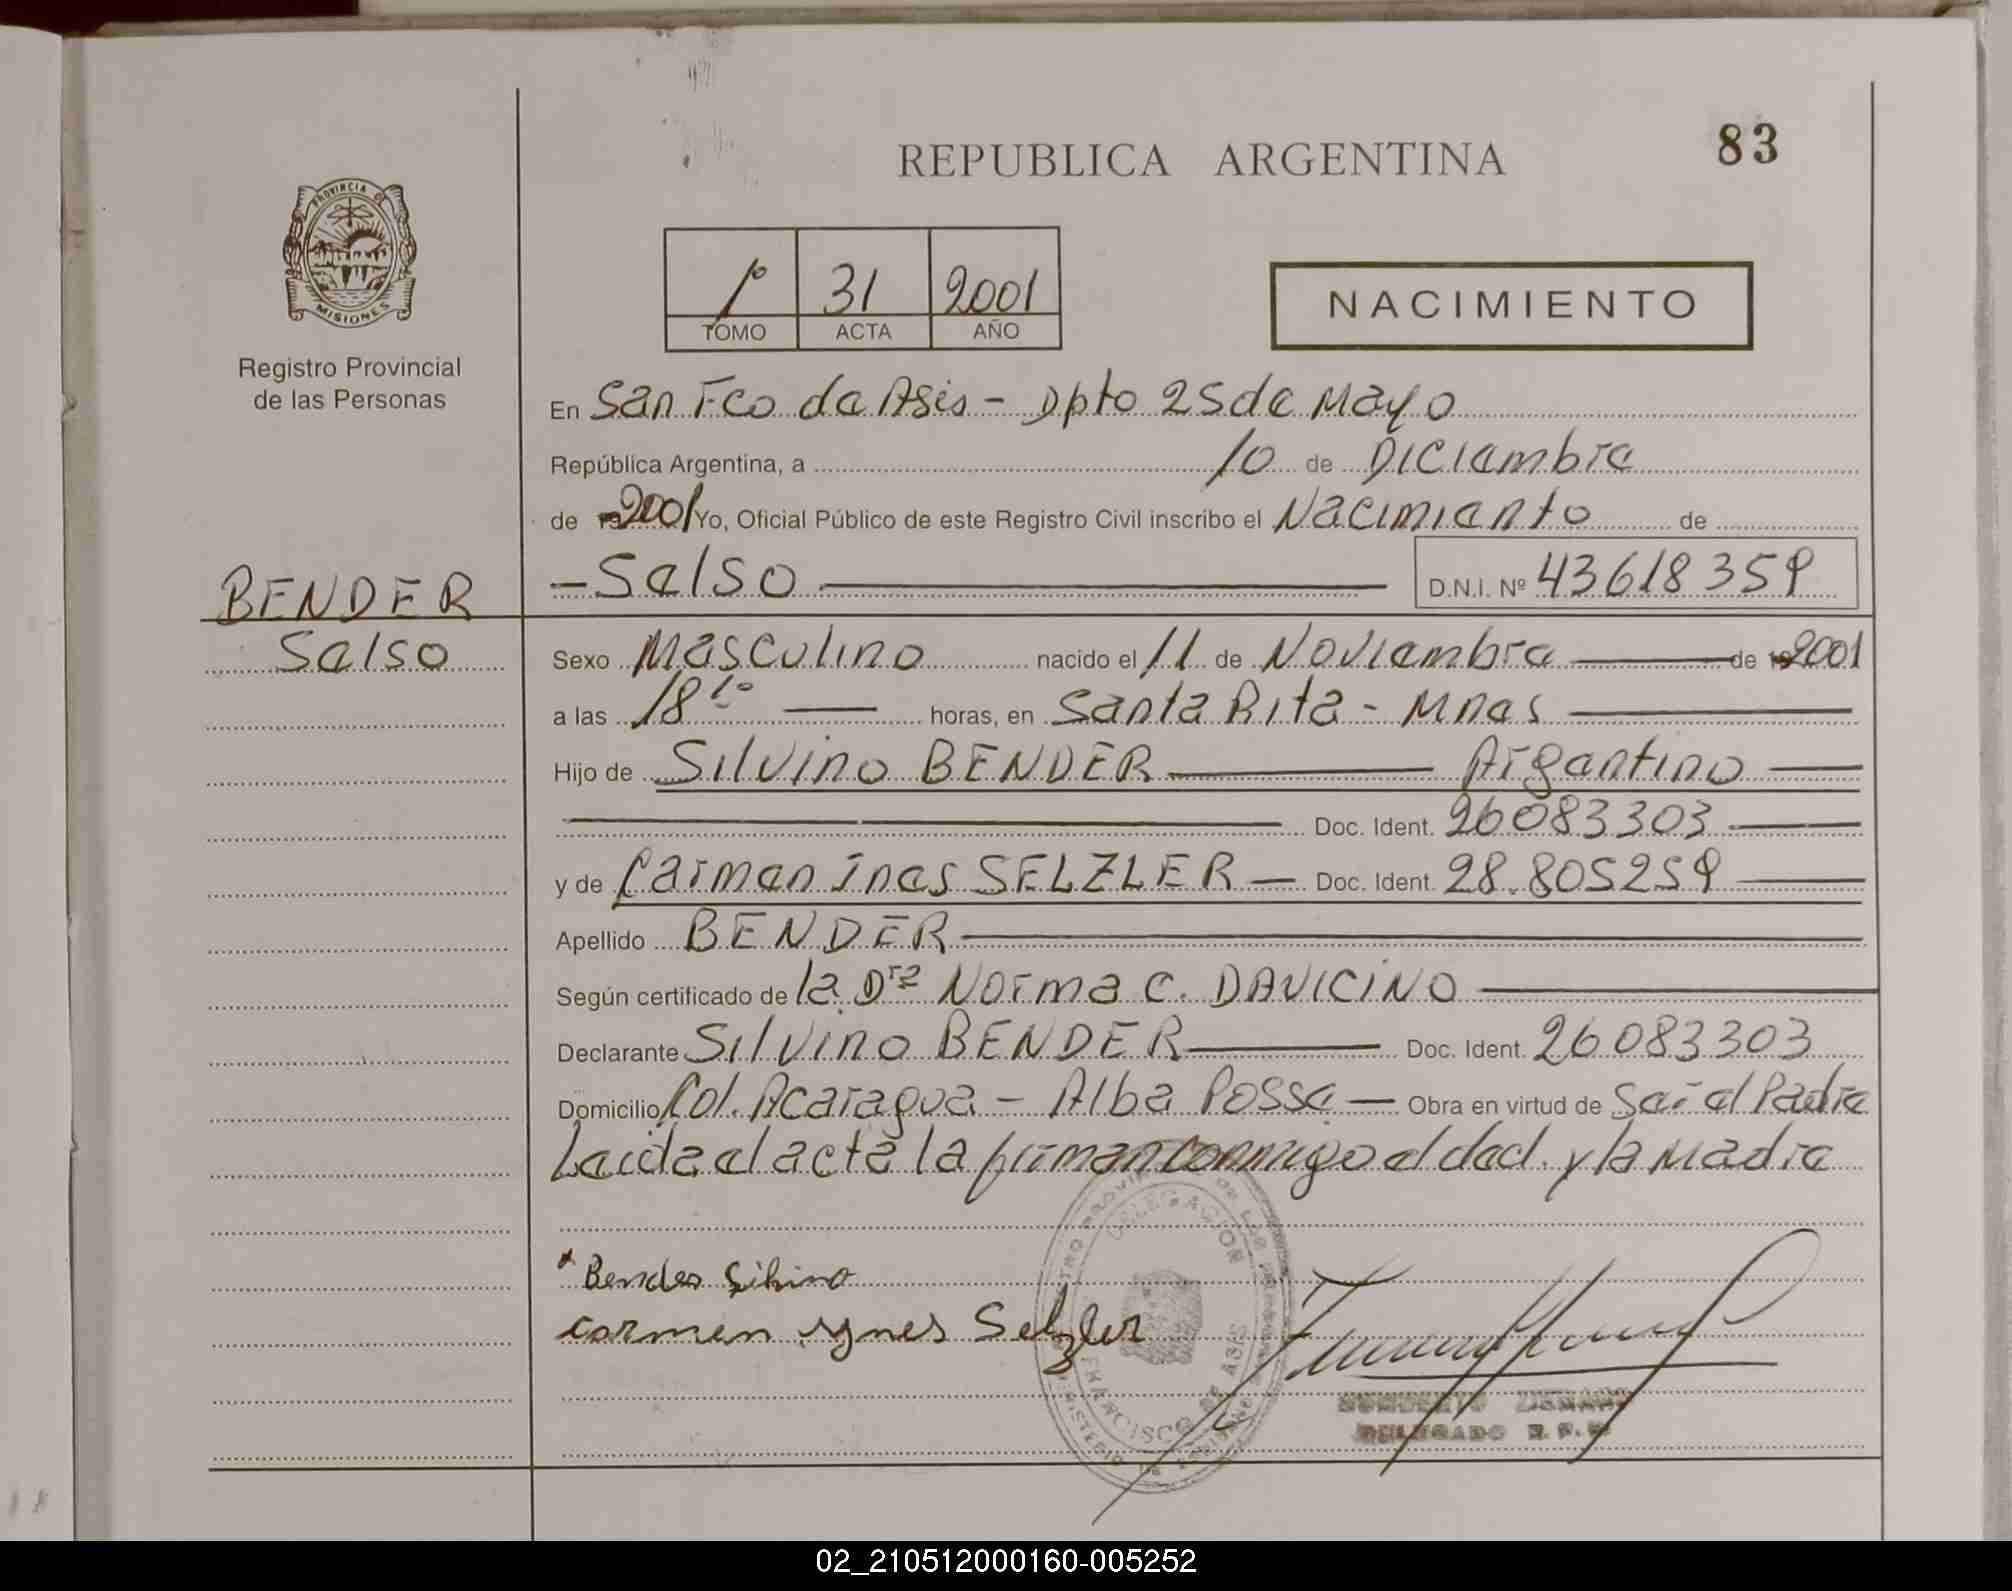 83
REPUBLICA ARGENTINA
PROVINCIA DE
MISIONES
Registro Provincial
de las Personas
1º 31 2001
TOMO ACTA AÑO
NACIMIENTO
En San Fco de Asis - Dpto 25 de Mayo
República Argentina, a 10 de Diciembre
de 2001 Yo, Oficial Público de este Registro Civil inscribo el Nacimiento de
- Selso D.N.I. Nº 43618359
BENDER
Selso
Sexo Masculino nacido el 11 de Noviembre de 2001
a las 18 10 horas, en Santa Rita - Mnes
Hijo de Silvino BENDER Argentino
Doc. Ident. 26083303
y de Carmen Ines SELZLER - Doc. Ident. 28.805259
Apellido BENDER
Según certificado de la Dra Norma C. DAVICINO
Declarante Silvino BENDER Doc. Ident. 26083303
Domicilio Col. Acaragua - Alba Posse - Obra en virtud de Ser el Padre
Leida el acta la firman conmigo el decl. y la Madre
Bender Silvino
carmen ynes Selzler
DELEGACION
FRANCISCO DE ASIS
DELEGADO R.P.P.
02_210512000160-005252